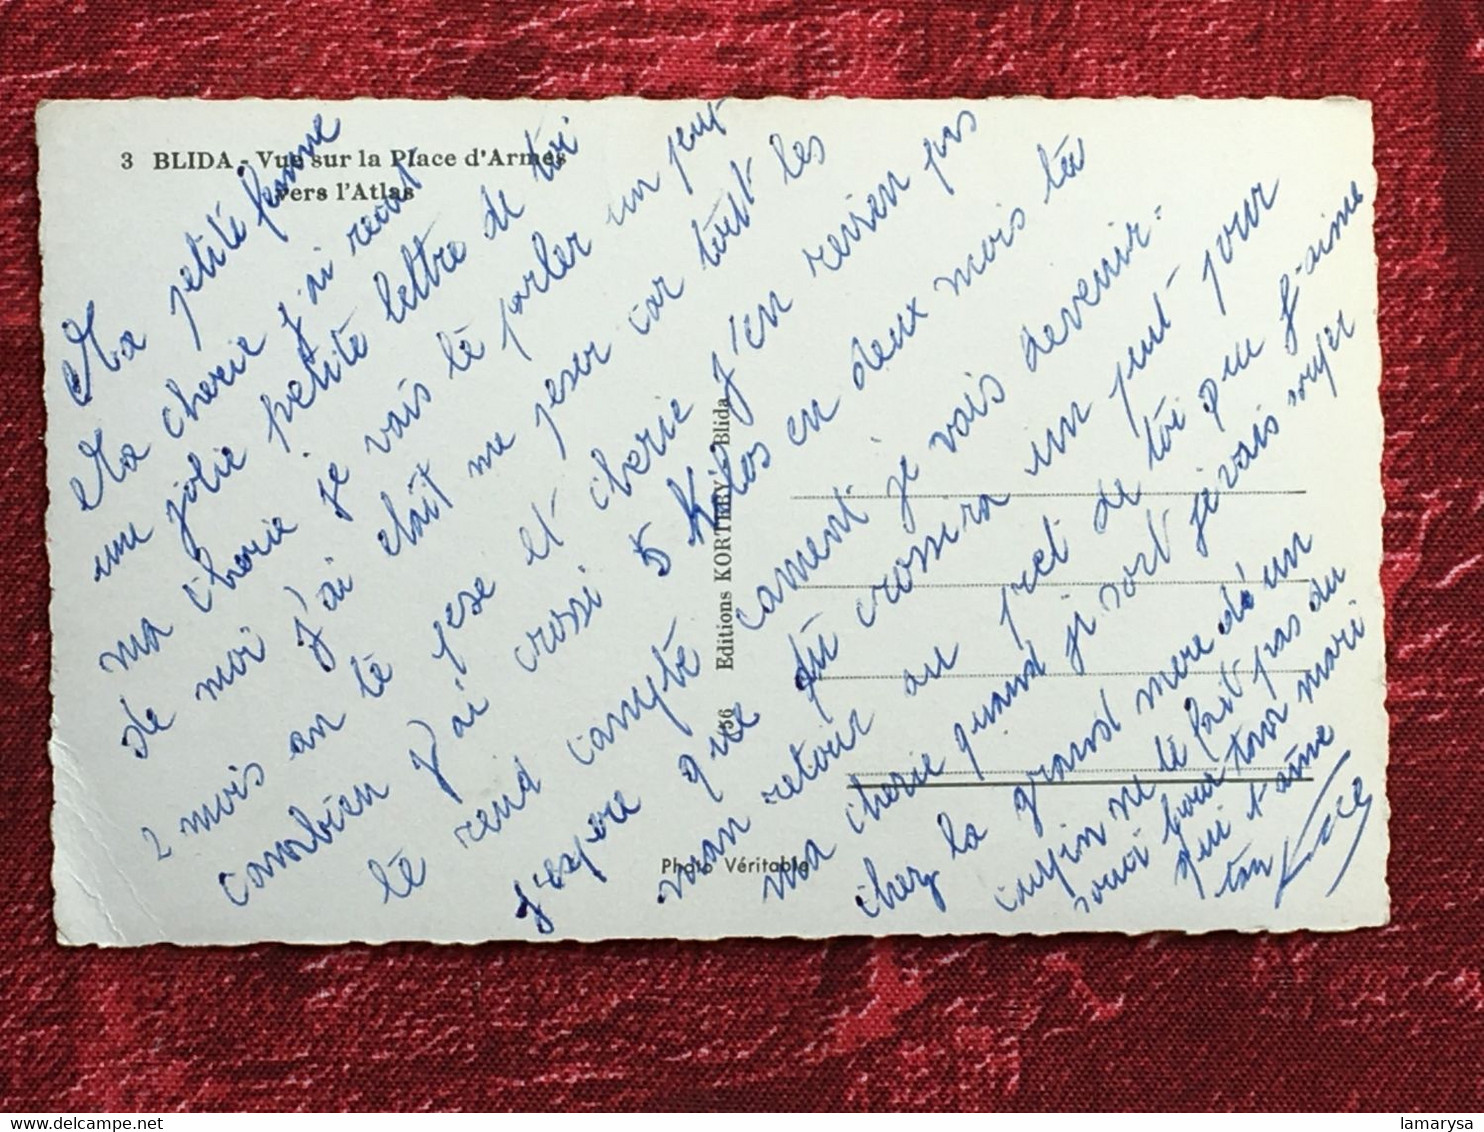 3 BLIDA - Vue sur la Place d'Armes
vers l'Atlas
Ma petite femme
Ma cherie j'ai recut
une jolie petite lettre de toi
ma cherie je vais te parler un peut
de moi j'ai etait me peser car tout les
2 mois an te pese et cherie j'en revien pas
combien j'ai crossi 5 Kilos en deux mois tu
te rend compte coment je vais devenir.
j'espere que tu crossira un peut pour
mon retour au pret de toi que j'aime
ma cherie quand je sort je vais souper
chez la grand mere d'un
copin ne te fait pas du
souci pour ton mari
qui t'aime
ton
Editions KORTEBY Blida
Photo Véritable
lamarysa